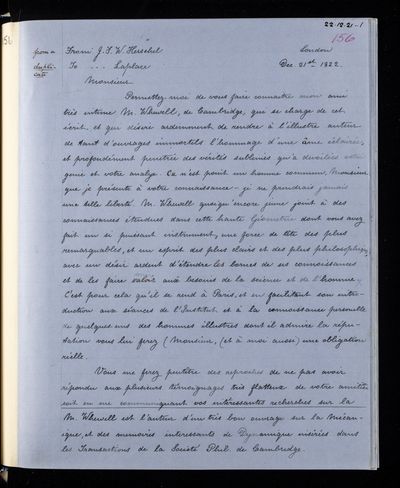 22·12·21-1
156
from a duplicate
From J. F. W. Herschel London
To ... Laplace Dec 21st 1822.
Monsieur
Permettez moi de vous faire connaitre mon ami
très intime M. Whewell, de Cambridge, que se charge de cet
écrit, et qui désire ardemment de rendre à l'illustre auteur
de tant d'ouvrages immortels l'hommage d'une âme éclairée,
et profondément penetrée des vérités sublimes qu'a dévoilées votre
genie et votre analyse. Ce n'est point un homme commun, Monsieur
que je présente à votre connaissance - je ne prendrais jamais
une telle liberté M. Whewell quoiqu'encore jeune joint à des
connaissances étendues dans cette haute Géometrie dont vous avez
fait un si puissant instrument, une force de tête des plus
remarquables, et un esprit des plus clairs et des plus philosophiques,
avec un désir ardent d'étendre les bornes de ses connaissances
et de les faire valoir aux besoins de la science et de l'homme.
C'est pour cela qu'il se rend à Paris, et en facilitant son intro-
duction aux séances de l'Institut et à la connaissance personelle
de quelques uns des hommes illustres dont il admire la répu-
tation vous lui ferez (Monsieur, (et à moi aussi) une obligation
réelle.
Vous me ferez peutêtre des reproches de ne pas avoir
répondu aux plusieurs témoignages très flatteux de votre amitié
soit en me communiquant vos intéressantes recherches sur la
M. Whewell est l'auteur d'un très bon ouvrage sur la Mécan-
ique, et des memoires interessants de Dynamique insérées dans
les Transactions de la Société Phil. de Cambridge.